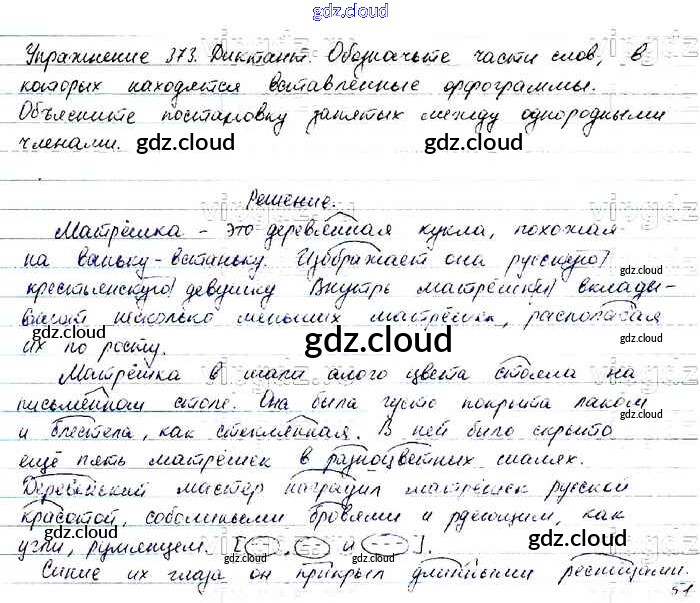 gdz.cloud
Упражнение 373. Диктант. Обозначьте части слов, в
которых находятся вставленные орфограммы.
Объясните постановку запятых между однородными
членами. gdz.cloud gdz.cloud
Решение.
Матрёшка - это деревянная кукла, похожая
на ваньку-встаньку. Изображает она русскую
gdz.cloud
крестьянскую девушку Внутрь матрёшки вклады-
вают несколько меньших матрёшек, располагая
их по росту. gdz.cloud gdz.cloud
Матрёшка в шали алого цвета стояла на
письменном столе. Она была густо покрыта лаком
и блестела, как стеклянная. В ней было скрыто
gdz.cloud gdz.cloud
ещё пять матрёшек в разноцветных шалях.
Деревенский мастер наградил матрёшек русской
красотой, соболиными бровями и рдеющим, как
gdz.cloud gdz.cloud
угли, румянцем. [ , и ].
Синие их глаза он прикрыл длинными ресницами.
51